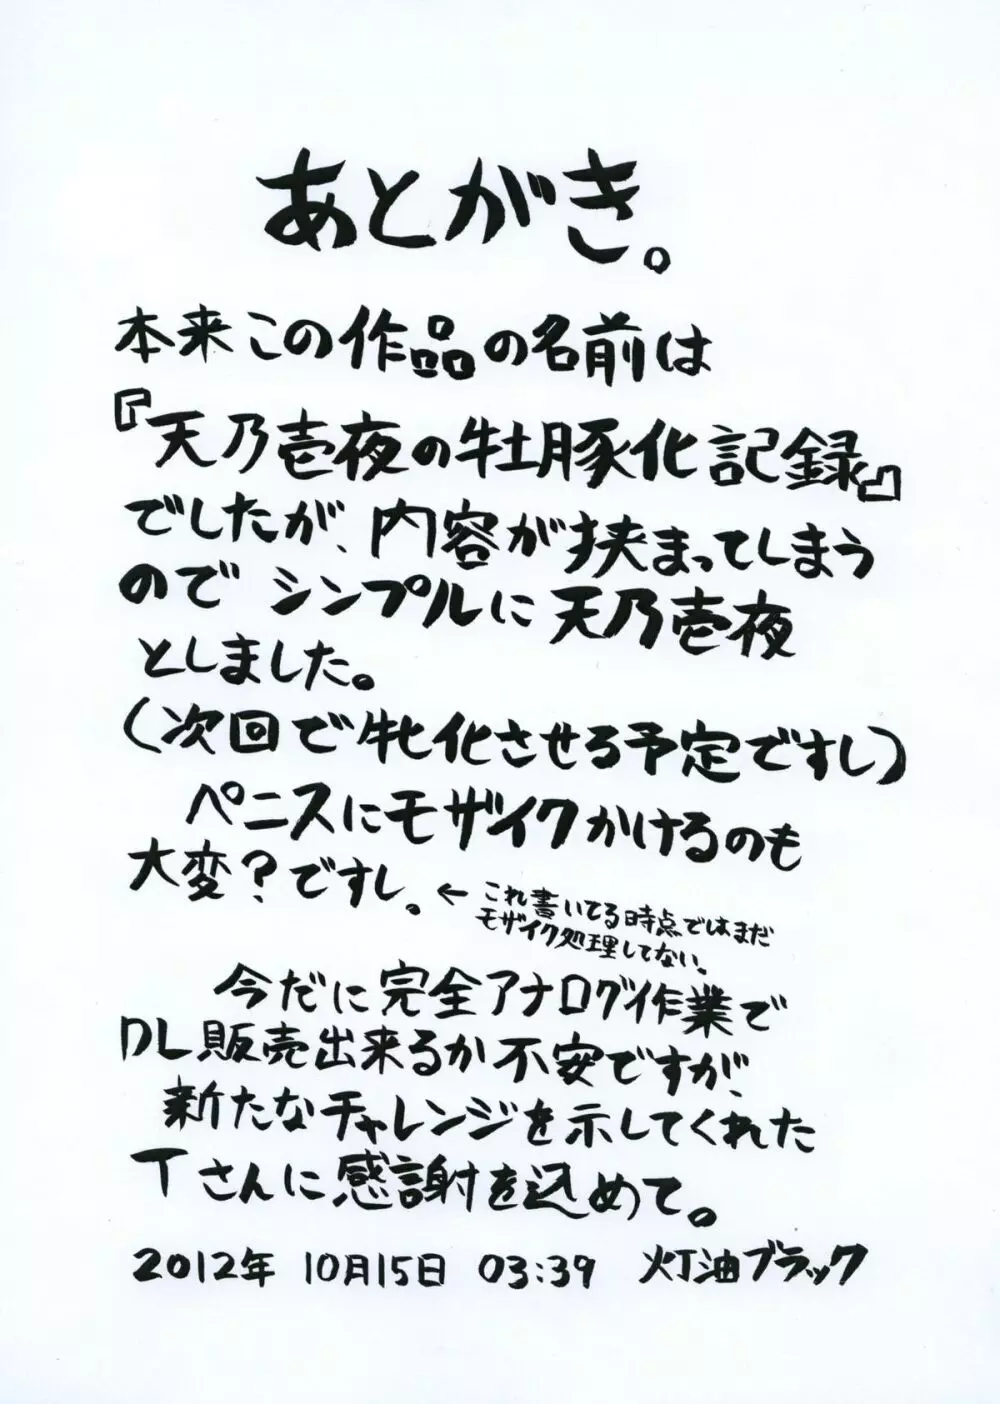 あとがき。
本来この作品の名前は
『天乃壱夜の牡豚化記録』
でしたが、内容が挟まってしまう
のでシンプルに天乃壱夜
としました。
(次回で牝化させる予定ですし)
ペニスにモザイクかけるのも
大変?ですし。←これ書いてる時点ではまだ
モザイク処理してない。
今だに完全アナログ作業で
DL販売出来るか不安ですが、
新たなチャレンジを示してくれた
Tさんに感謝を込めて。
2012年 10月15日 03:39 灯油ブラック